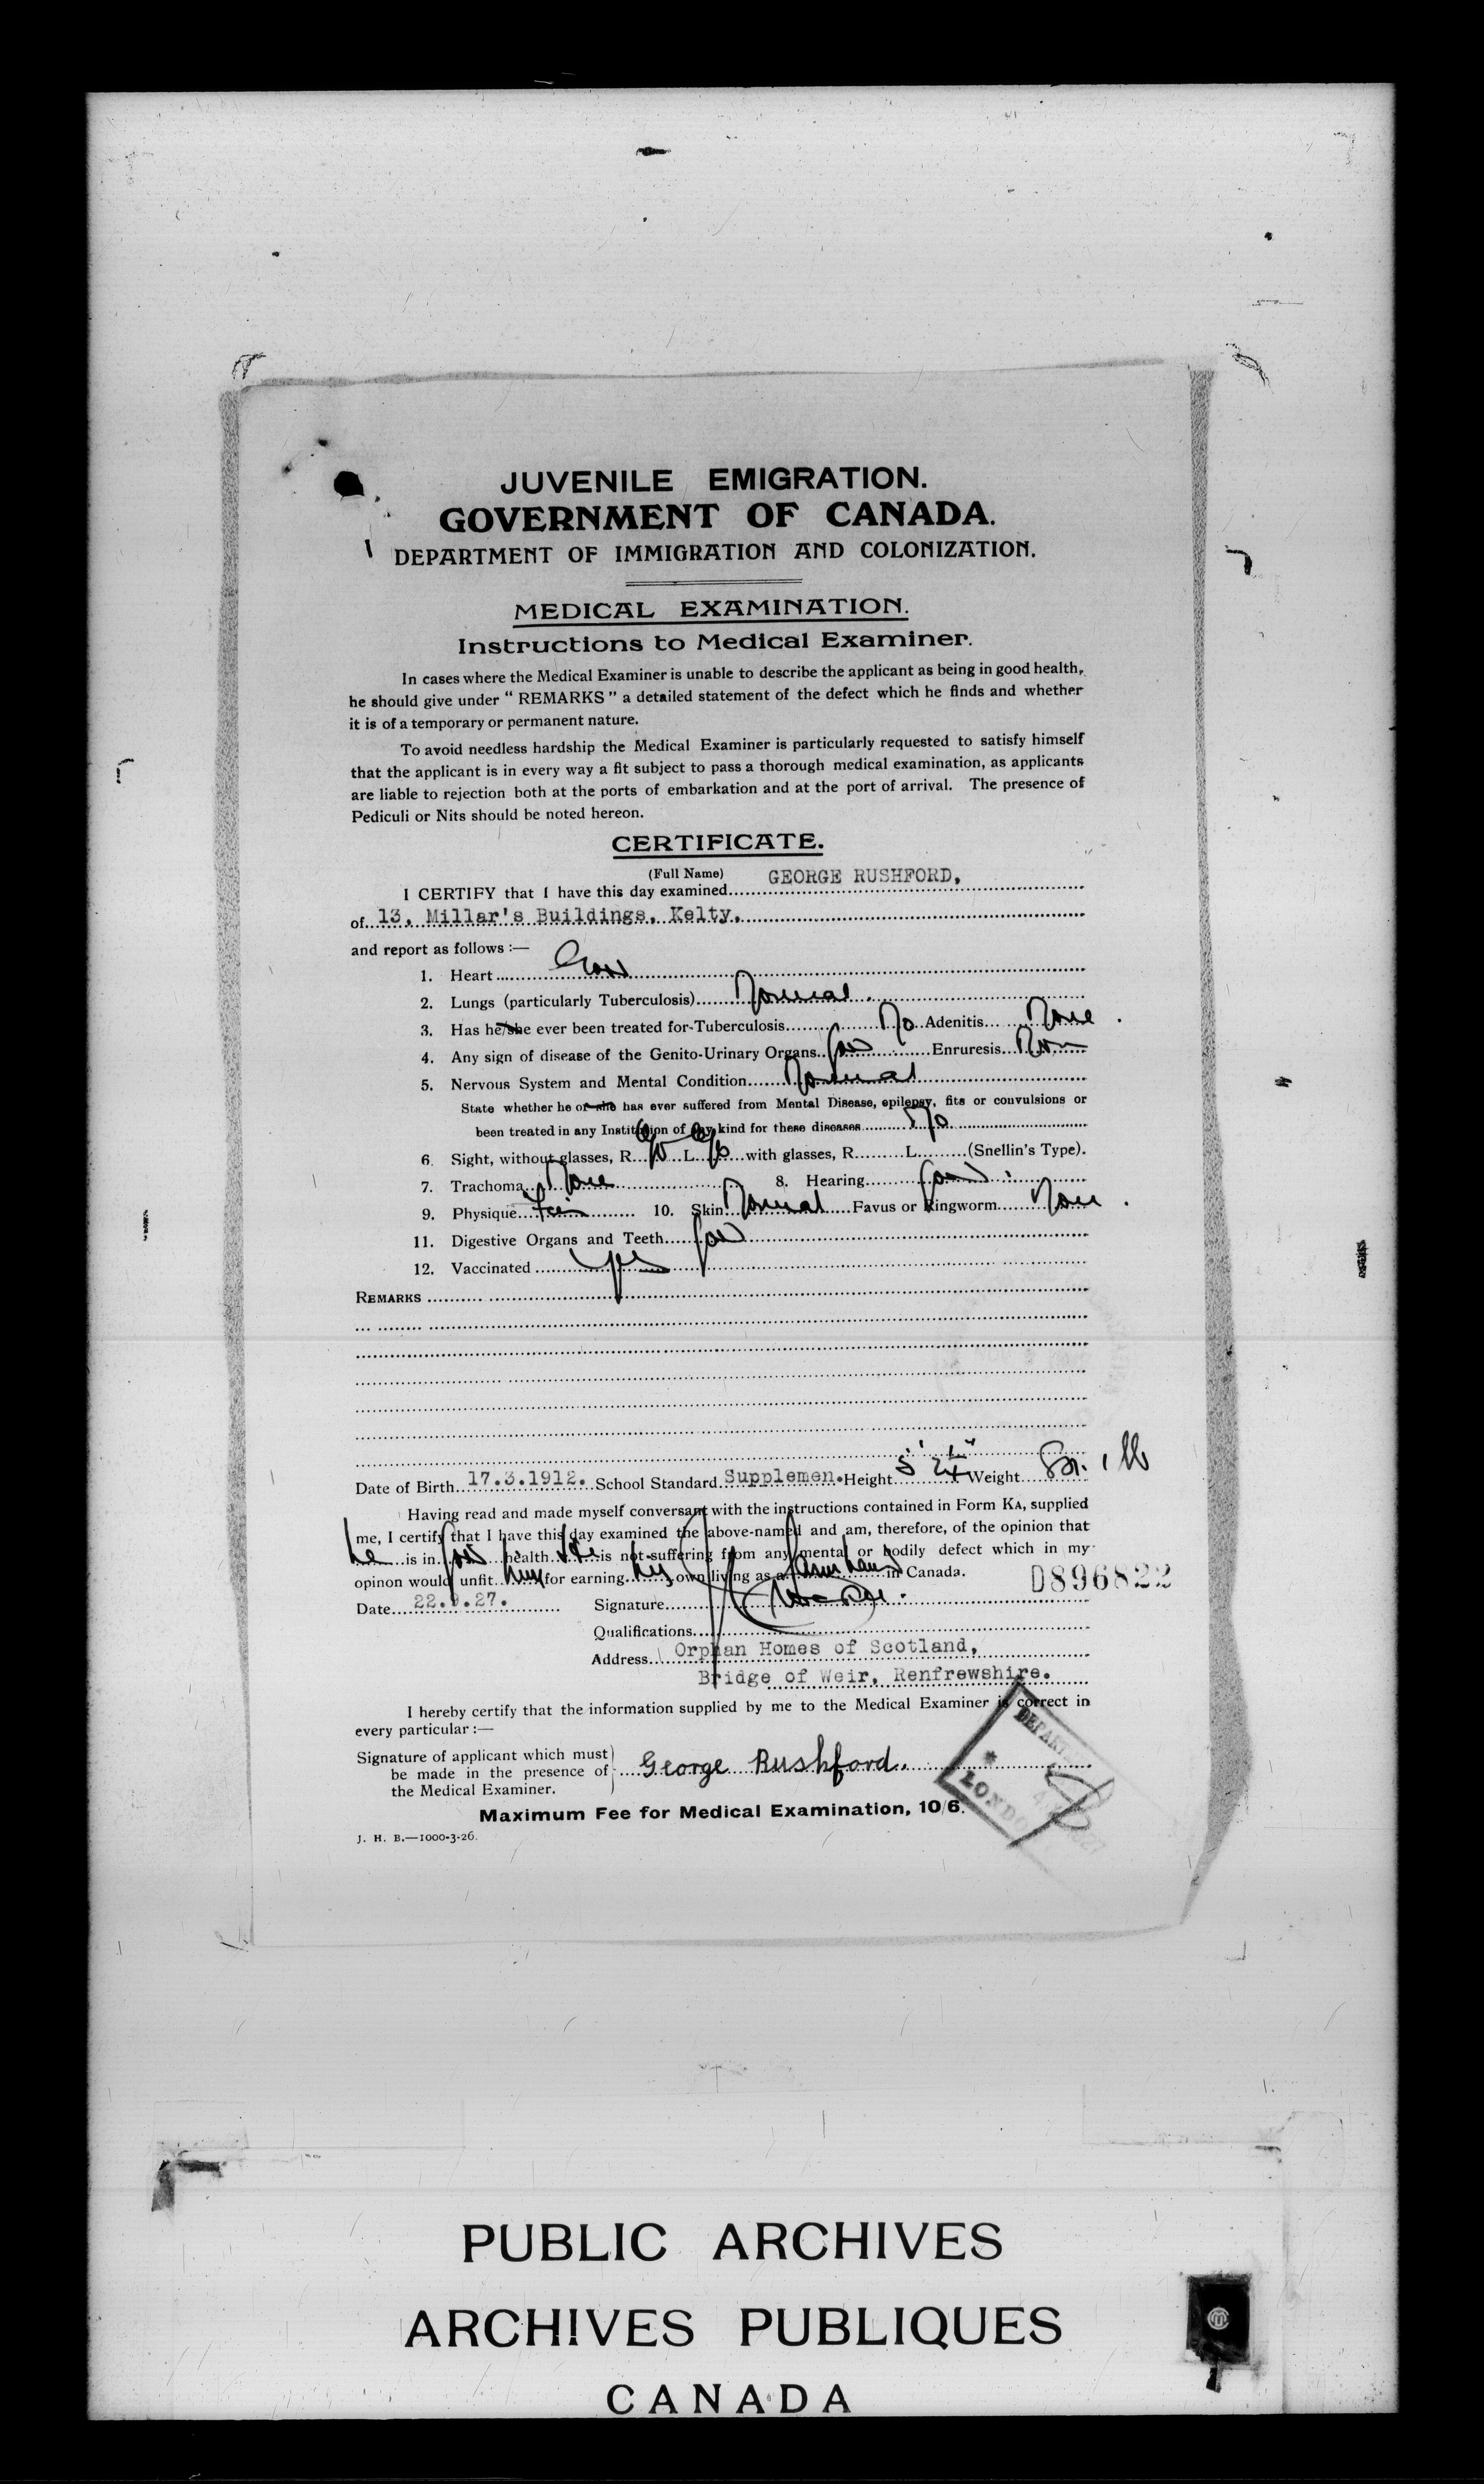 JUVENILE EMIGRATION.
GOVERNMENT OF CANADA.
DEPARTMENT OF IMMIGRATION AND COLONIZATION.
MEDICAL EXAMINATION.
Instructions to Medical Examiner.
In cases where the Medical Examiner is unable to describe the applicant as being in good health,
he should give under “ REMARKS ” a detailed statement of the defect which he finds and whether
it is of a temporary or permanent nature.
To avoid needless hardship the Medical Examiner is particularly requested to satisfy himself
that the applicant is in every way a fit subject to pass a thorough medical examination, as applicants
are liable to rejection both at the ports of embarkation and at the port of arrival. The presence of
Pediculi or Nits should be noted hereon.
CERTIFICATE.
(Full Name)
I CERTIFY that I have this day examined GEORGE RUSHFORD,
of 13, Millar's Buildings, Kelty,
and report as follows :—
1. Heart Good
2. Lungs (particularly Tuberculosis) Normal
3. Has he/she ever been treated for-Tuberculosis No Adenitis None
4. Any sign of disease of the Genito-Urinary Organs Enruresis None
5. Nervous System and Mental Condition Normal
State whether he or she has ever suffered from Mental Disease, epilepsy, fits or convulsions or
been treated in any Institution of any kind for these diseases No
6. Sight, without glasses, R. 6/6 L. 6/6 with glasses, R. L. (Snellin's Type).
7. Trachoma None 8. Hearing good
9. Physique Fair 10. Skin Normal Favus or Ringworm None
11. Digestive Organs and Teeth good
12. Vaccinated Yes
REMARKS
Date of Birth 17.3.1912. School Standard Supplemen. Height Weight
Having read and made myself conversant with the instructions contained in Form KA, supplied
me, I certify that I have this day examined the above-named and am, therefore, of the opinion that
he is in good health He is not suffering from any mental or bodily defect which in my
opinon would unfit him for earning his own living as a farm hand in Canada.
D896822
Date 22.9.27. Signature
Qualifications
Address Orphan Homes of Scotland,
Bridge of Weir, Renfrewshire.
I hereby certify that the information supplied by me to the Medical Examiner is correct in
every particular :—
Signature of applicant which must
be made in the presence of George Rushford.
the Medical Examiner.
DEPART
LONDON
Maximum Fee for Medical Examination, 10/6.
J. H. B.—1000-3-26.
PUBLIC ARCHIVES
ARCHIVES PUBLIQUES
CANADA